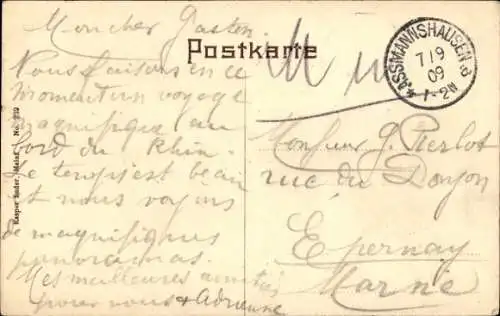 Mon cher Gaston
Nous faisons en ce
moment un voyage
magnifique au
bord du Rhin.
Le temps est beau
et nous voyons
de magnifiques
panoramas.
Mes meilleures amitiés
pour vous & Adrienne
Postkarte
ASSMANNSHAUSEN
7/9
09
1-2N
Monsieur G. Pierlot
rue du Donjon
Epernay
Marne
No. 239